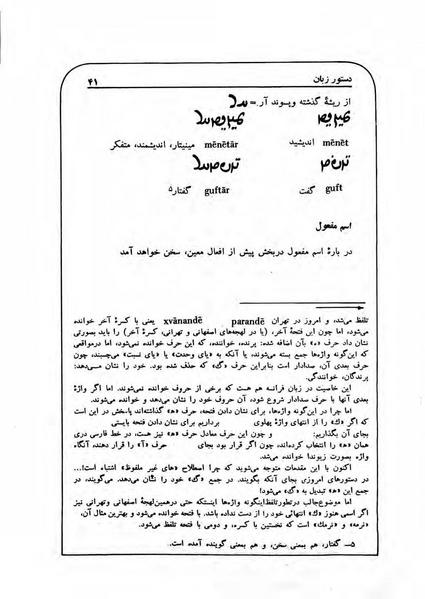 دستور زبان
۴۱
از ریشهٔ گذشته وپسوند آر =
mēnēt اندیشید mēnētār مینیتار، اندیشمند، متفکر
guft گفت guftār گفتار۵
اسم مفعول
در بارهٔ اسم مفعول دربخش پیش از افعال معین، سخن خواهد آمد
تلفظ می‌شد، و امروز در تهران parandē xvānandē یعنی با کسرهٔ آخر خوانده
می‌شود، اما چون این فتحهٔ آخر، (یا در لهجه‌های اصفهانی و تهرانی، کسرهٔ آخر) را باید بصورتی
نشان داد حرف «ه» بآن اضافه شده: پرنده، خواننده، که این حرف خوانده نمی‌شود، اما درمواقعی
که این‌گونه واژه‌ها جمع بسته می‌شوند، یا آنکه به «یای وحدت» یا «یای نسبت» می‌چسبند، چون
حرف بعدی آن، صدادار است بنابراین حرف «گ» که حذف شده بود. خود را نشان می‌دهد:
پرندگان، خوانندگی.
این خاصیت در زبان فرانسه هم هست که برخی از حروف خوانده نمی‌شوند. اما اگر واژهٔ
بعدی آنها با حرف صدادار شروع شود، آن حروف خود را نشان می‌دهد و خوانده می‌شوند.
اما چرا در این‌گونه واژه‌ها، برای نشان دادن فتحه، حرف «ه» گذاشته‌اند پاسخش در این است
که اگر «ك» را از انتهای واژهٔ پهلوی برداریم برای نشان دادن فتحه بایستی
بجای آن بگذاریم: و چون این حرف معادل حرف «ه» نیز هست، در خط فارسی دری
همان «ه» را انتخاب کرده‌اند، چون اگر قرار بود بجای حرف «آ» را قرار دهند، آنگاه
واژه بصورت زیوندا خوانده می‌شد.
اکنون با این مقدمات متوجه می‌شوید که چرا اصطلاح «های غیر ملفوظ» اشتباه است!...
در دستورهای امروزی بجای آنکه بگویند. در جمع «گ» خود را نشان می‌دهد. می‌گویند، در
جمع این «ه» تبدیل به «گ» می‌شود!
اما موضوع‌جالب درطورتلفظ‌اینگونه واژه‌ها اینستکه حتی درهمین‌لهجهٔ اصفهانی وتهرانی نیز
اگر اسمی هنوز «ك» انتهائی خود را از دست نداده باشد. با فتحه خوانده می‌شود و بهترین مثال آن،
«نرمه» و «نرمك» است که نخستین با کسره، و دومی با فتحه تلفظ می‌شود.
۵ــ گفتار، هم بمعنی سخن، و هم بمعنی گوینده آمده است.